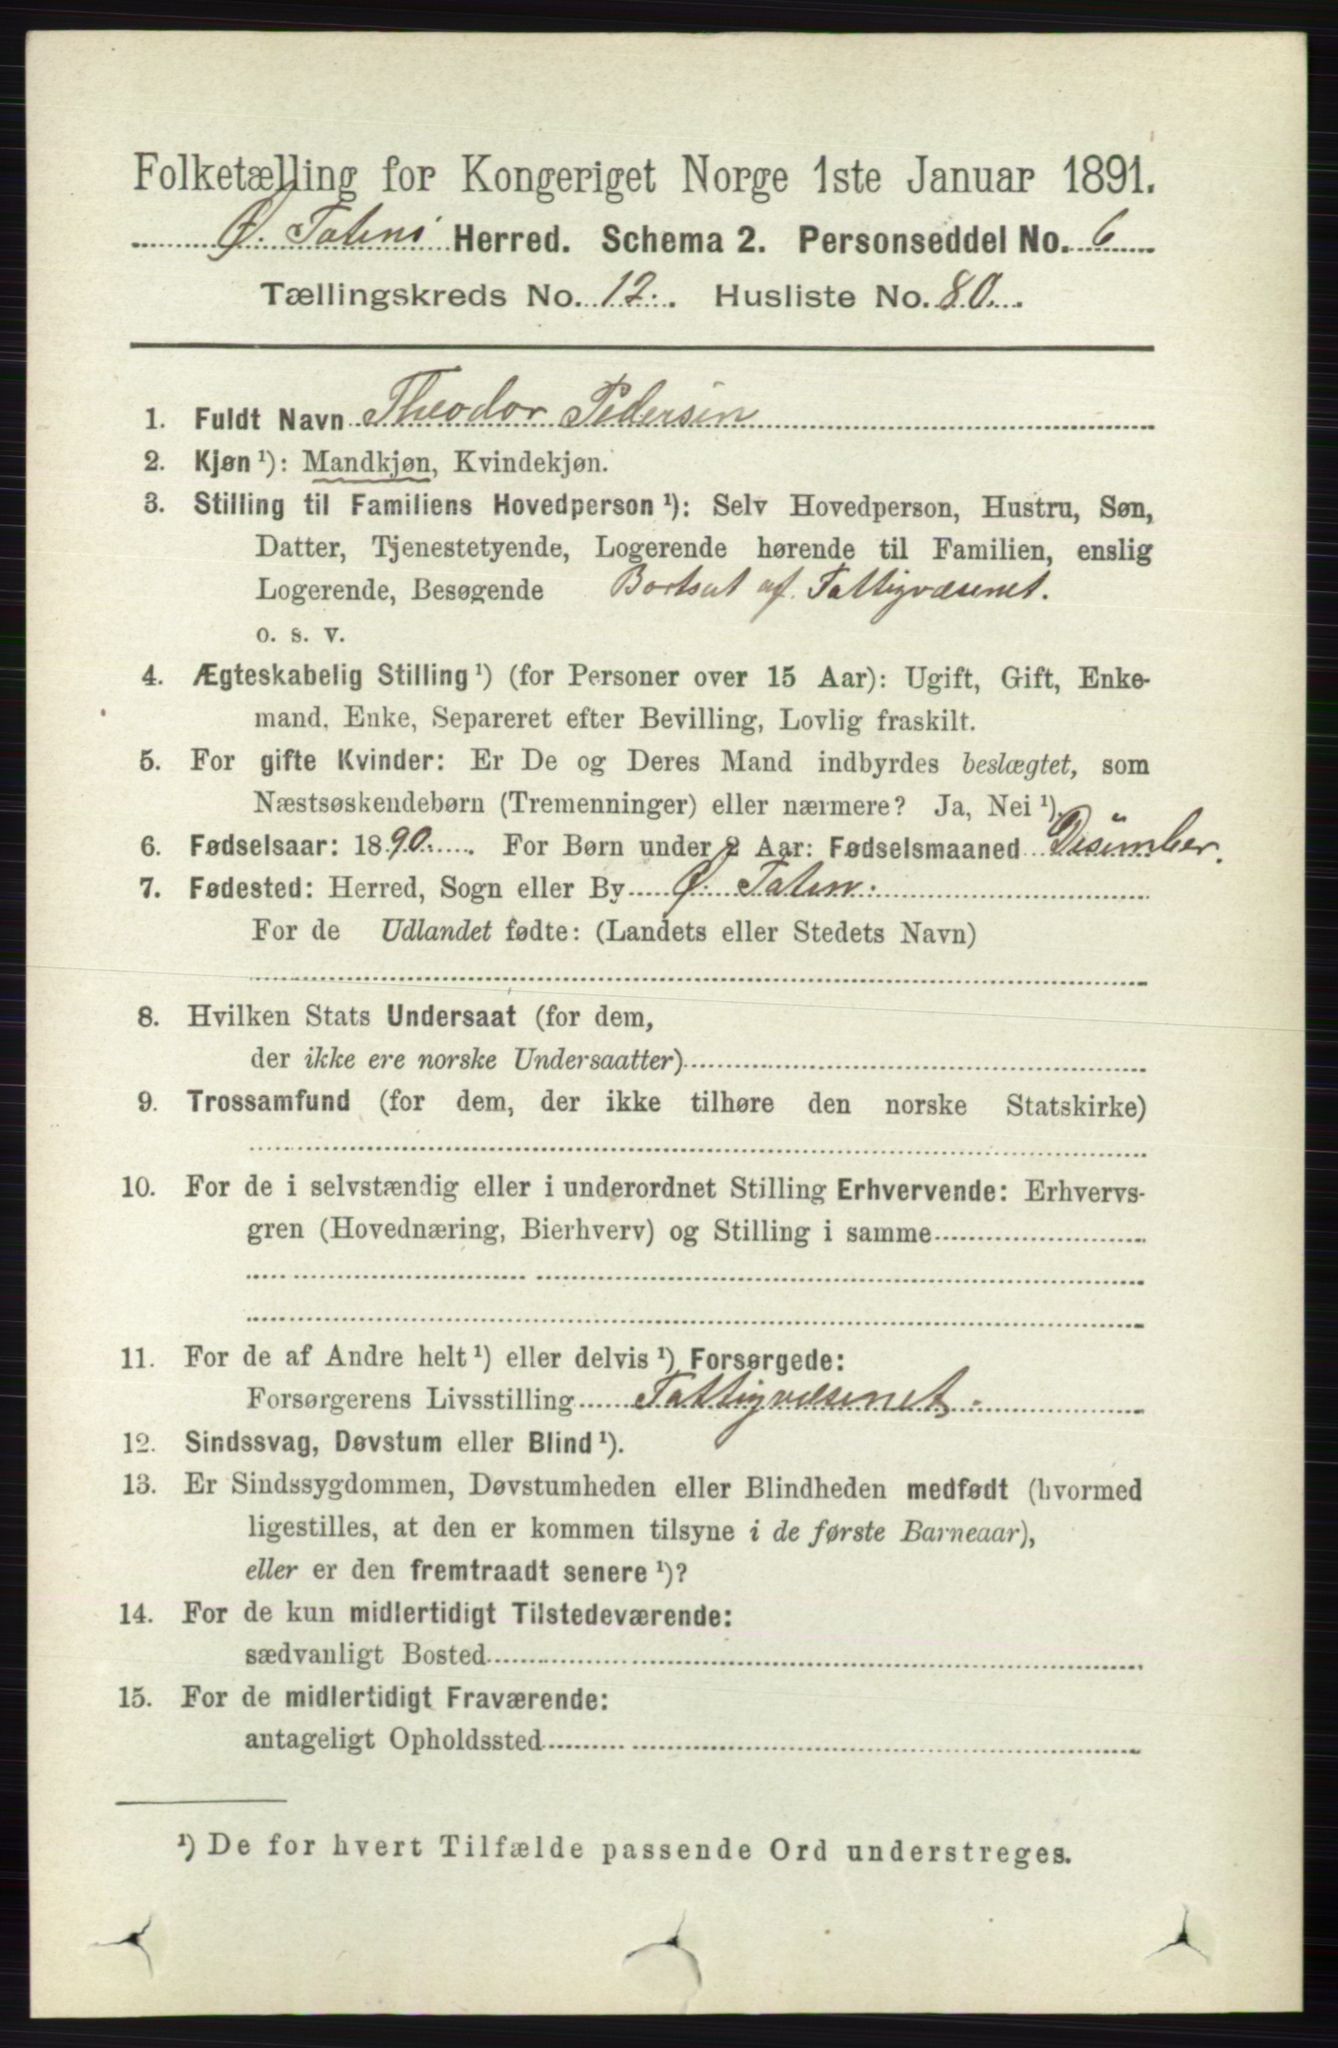 Folketælling for Kongeriget Norge 1ste Januar 1891.
Ø. Totens Herred. Schema 2. Personseddel No. 6
Tællingskreds No. 12. Husliste No. 80.
1. Fuldt Navn Theodor Pedersen
2. Kjøn ¹): Mandkjøn, Kvindekjøn.
3. Stilling til Familiens Hovedperson ¹): Selv Hovedperson, Hustru, Søn,
Datter, Tjenestetyende, Logerende hørende til Familien, enslig
Logerende, Besøgende Bortsat af Fattigvæsenet.
o. s. v.
4. Ægteskabelig Stilling ¹) (for Personer over 15 Aar): Ugift, Gift, Enke-
mand, Enke, Separeret efter Bevilling, Lovlig fraskilt.
5. For gifte Kvinder: Er De og Deres Mand indbyrdes beslægtet, som
Næstsøskendebørn (Tremenninger) eller nærmere? Ja, Nei ¹).
6. Fødselsaar: 1890. For Børn under 2 Aar: Fødselsmaaned Desember.
7. Fødested: Herred, Sogn eller By Ø. Toten.
For de Udlandet fødte: (Landets eller Stedets Navn)
8. Hvilken Stats Undersaat (for dem,
der ikke ere norske Undersaatter)
9. Trossamfund (for dem, der ikke tilhøre den norske Statskirke)
10. For de i selvstændig eller i underordnet Stilling Erhvervende: Erhvervs-
gren (Hovednæring, Bierhverv) og Stilling i samme
11. For de af Andre helt ¹) eller delvis ¹) Forsørgede:
Forsørgerens Livsstilling Fattigvæsenet.
12. Sindssvag, Døvstum eller Blind ¹).
13. Er Sindssygdommen, Døvstumheden eller Blindheden medfødt (hvormed
ligestilles, at den er kommen tilsyne i de første Barneaar),
eller er den fremtraadt senere ¹)?
14. For de kun midlertidigt Tilstedeværende:
sædvanligt Bosted
15. For de midlertidigt Fraværende:
antageligt Opholdssted
¹) De for hvert Tilfælde passende Ord understreges.